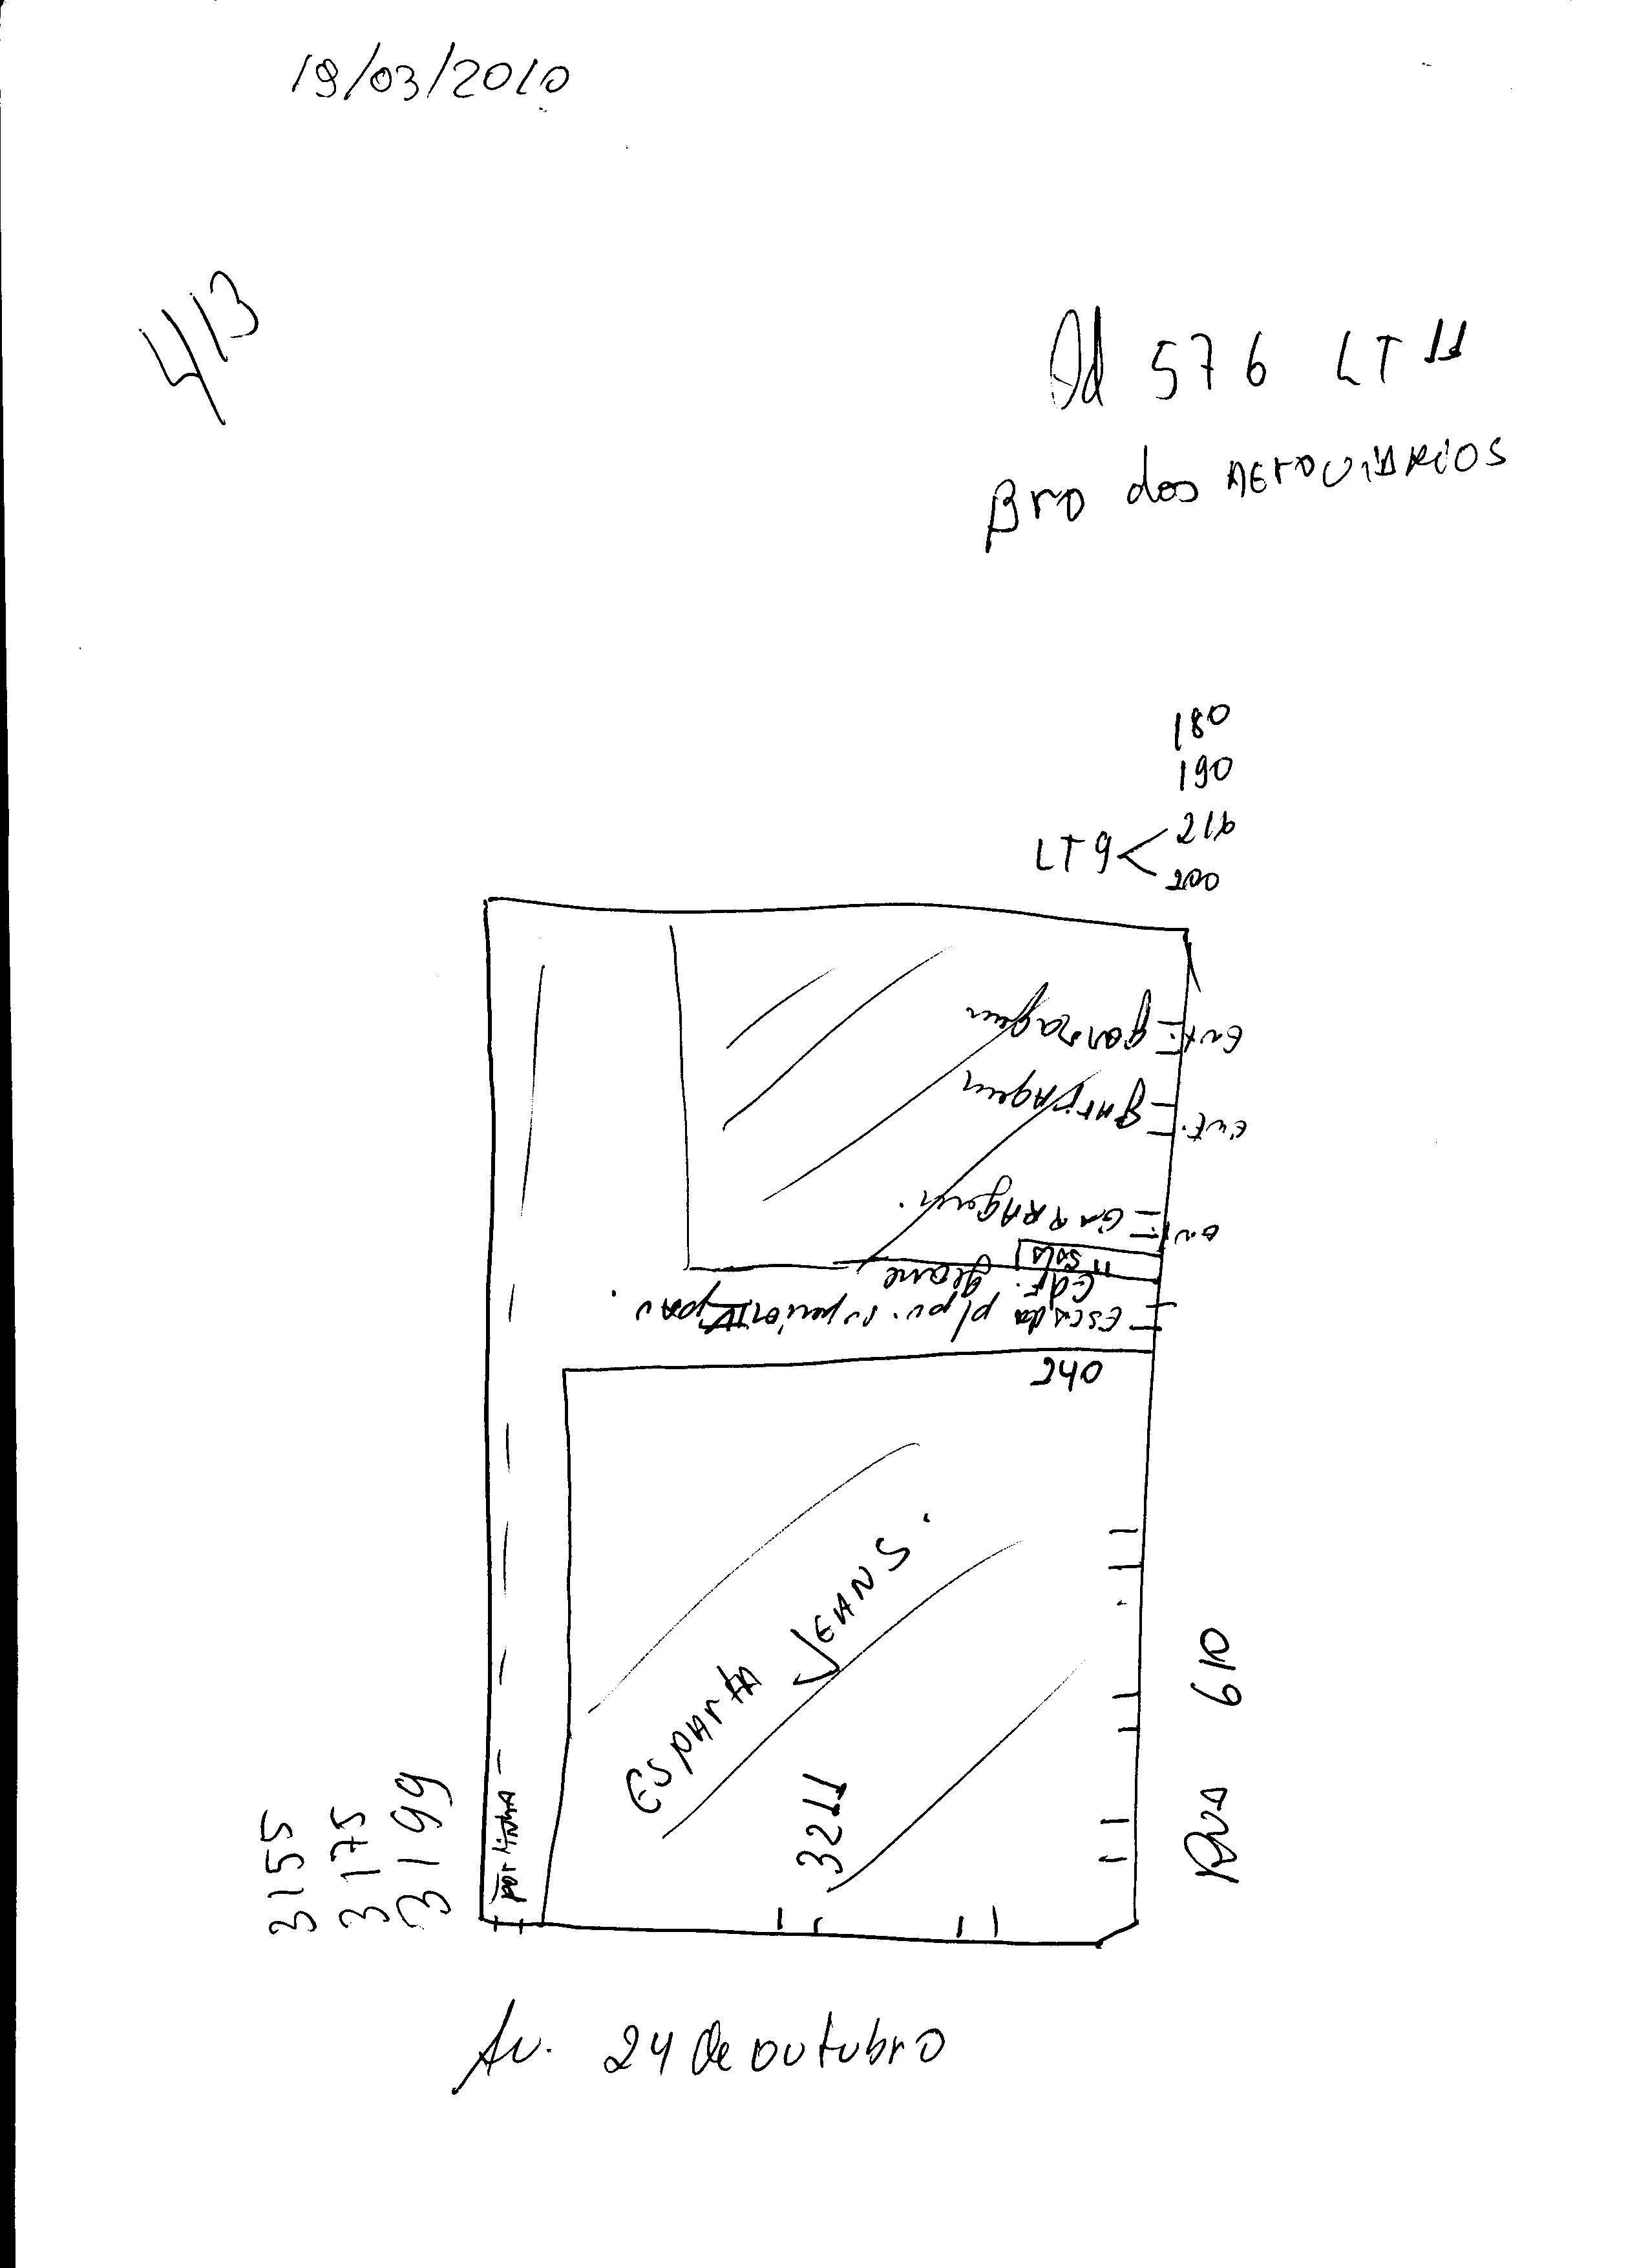 19/03/2010
413
Qd 576 LT 11
Bro dos AEroviArios
180
190
LT 9 < 210
200
Ent. garragem
Ent. garragem
Ent. GARRAgem.
11 sala
Edf. geane
Escada p/ pv. superior
240
ESPArtA JEANS.
3211
portinha
3155
3175
3199
Rua 610
Av. 24 de outubro